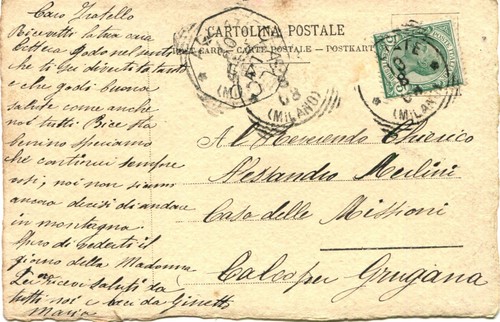 CARTOLINA POSTALE
CARD - CARTE POSTALE - POSTKART
Caro Fratello
Ricevetti la tua cara
lettera godo nel sentire
che ti sei divertito tanto
e che godi buona
salute come anche
noi tutti Bice sta
benino speriamo
che continui sempre
così, noi non siamo
ancora decisi di andare
in montagna.
Spero di vederti il
giorno della Madonna
ricevi saluti da
tutti noi e baci da
Maria
(MILANO)
(MILANO)
Al Reverendo Chierico
Alessandro Merlini
Casa delle Missioni
Calco per Grugana